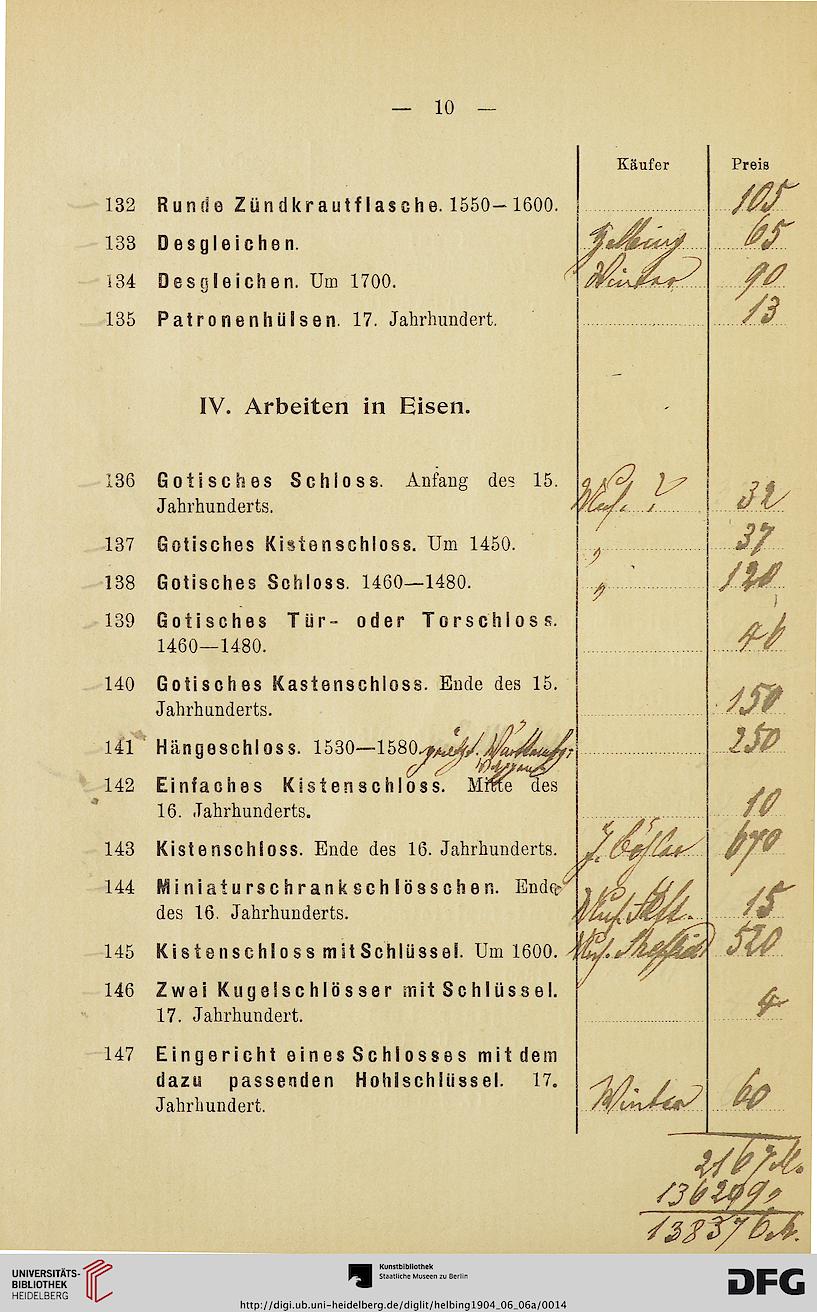 — 10 —
Käufer Preis
132 Runde Zündkrautflasche. 1550—1600. 105
133 Desgleichen. Helbing 65
134 Desgleichen. Um 1700. Winter 90
135 Patronenhülsen. 17. Jahrhundert. 13
IV. Arbeiten in Eisen.
136 Gotisches Schloss. Anfang des 15. Mus. ? 32
Jahrhunderts.
137 Gotisches Kistenschloss. Um 1450. " 37
138 Gotisches Schloss. 1460—1480. " 120
139 Gotisches Tür- oder Torschloss.
1460—1480. 46
140 Gotisches Kastenschloss. Ende des 15.
Jahrhunderts. 150
141 Hängeschloss. 1530—1580. 250
142 Einfaches Kistenschloss. Mitte des
16. Jahrhunderts. 10
143 Kistenschloss. Ende des 16. Jahrhunderts. 670
144 Miniaturschrankschlösschen. Ende
des 16. Jahrhunderts. Mus. 15
145 Kistenschloss mit Schlüssel. Um 1600. Mus. 520
146 Zwei Kugelschlösser mit Schlüssel.
17. Jahrhundert. 4
147 Eingericht eines Schlosses mit dem
dazu passenden Hohlschlüssel. 17.
Jahrhundert. Winter 60
2167 M.
136209
138376 M.
UNIVERSITÄTS-
BIBLIOTHEK
HEIDELBERG
Kunstbibliothek
Staatliche Museen zu Berlin
DFG
http://digi.ub.uni-heidelberg.de/diglit/helbing1904_06_06a/0014